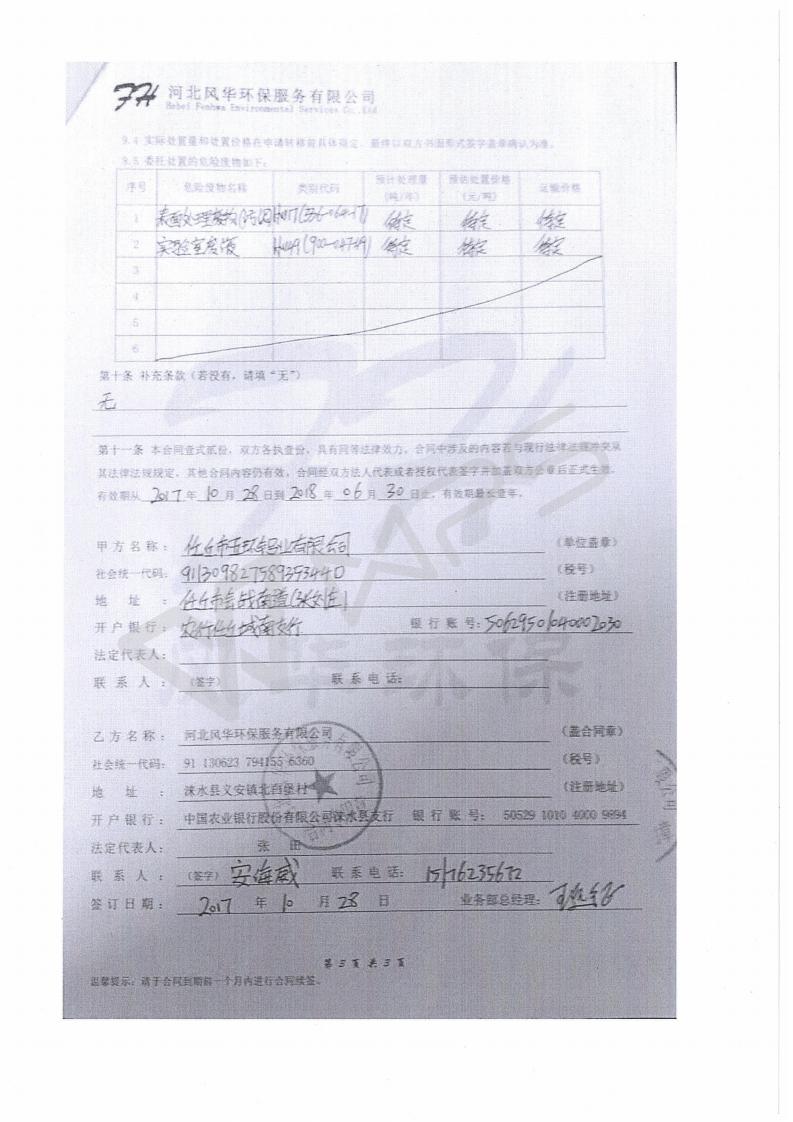 FH 河北风华环保服务有限公司
Hebei Fenhwa Environmental Services Co.,Ltd
9.4 实际处置量和处置价格在申请转移前具体商定，最终以双方书面形式签字盖章确认为准。
9.5 委托处置的危险废物如下：
序号 危险废物名称 类别代码 预计处理量（吨/年） 预估处置价格（元/吨） 运输价格
1 表面处理废物(污泥) HW17(336-064-17) 待定 待定 待定
2 实验室废液 HW49(900-047-49) 待定 待定 待定
3
4
5
6
第十条 补充条款（若没有，请填“无”）
无
第十一条 本合同壹式贰份，双方各执壹份，具有同等法律效力，合同中涉及的内容若与现行法律法规冲突从
其法律法规规定，其他合同内容仍有效，合同经双方法人代表或者授权代表签字并加盖双方公章后正式生效。
有效期从 2017 年 10 月 28 日到 2018 年 06 月 30 日止，有效期最长壹年。
甲方名称： 任丘市亚环铝业有限公司 （单位盖章）
社会统一代码： 91130982758939344D （税号）
地 址 ： 任丘市会战南道(张各庄) （注册地址）
开户银行： 农行任丘城南支行 银行账号： 50629501040002030
法定代表人：
联 系 人 ： （签字） 联系电话：
乙方名称： 河北风华环保服务有限公司 （盖合同章）
社会统一代码： 91 130623 794155 6360 （税号）
地 址 ： 涞水县义安镇北白堡村 （注册地址）
开户银行： 中国农业银行股份有限公司涞水县支行 银行账号： 50529 1010 4000 9894
法定代表人： 张 田
联 系 人 ： （签字） 安海威 联系电话： 15176235672
签订日期： 2017 年 10 月 28 日 业务部总经理：
第 3 页 共 3 页
温馨提示：请于合同到期前一个月内进行合同续签。